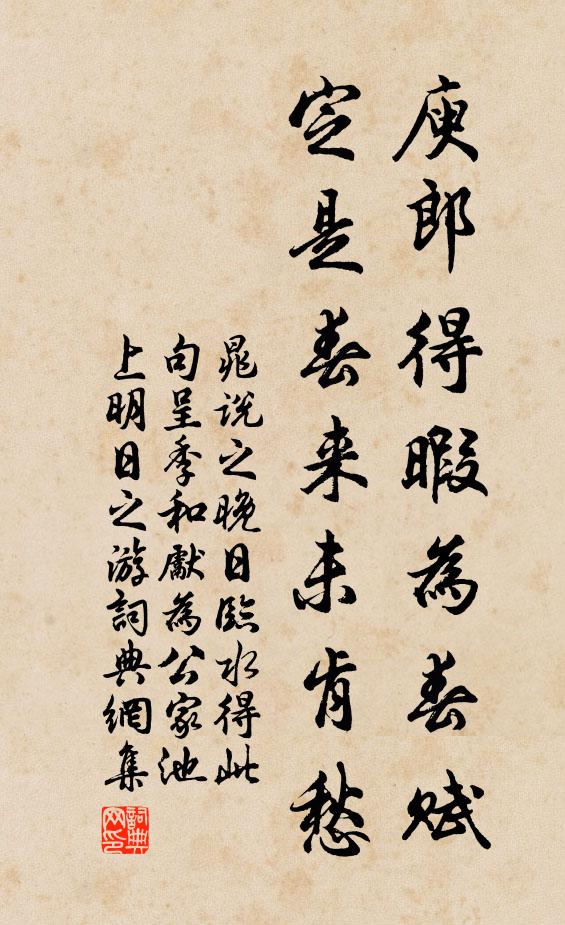 庾郎得暇為春賦
定是春来未肯愁
晁说之晚日臨水得此
句呈季和獻為公家池
上明日之游詞典網集
詞典
网印